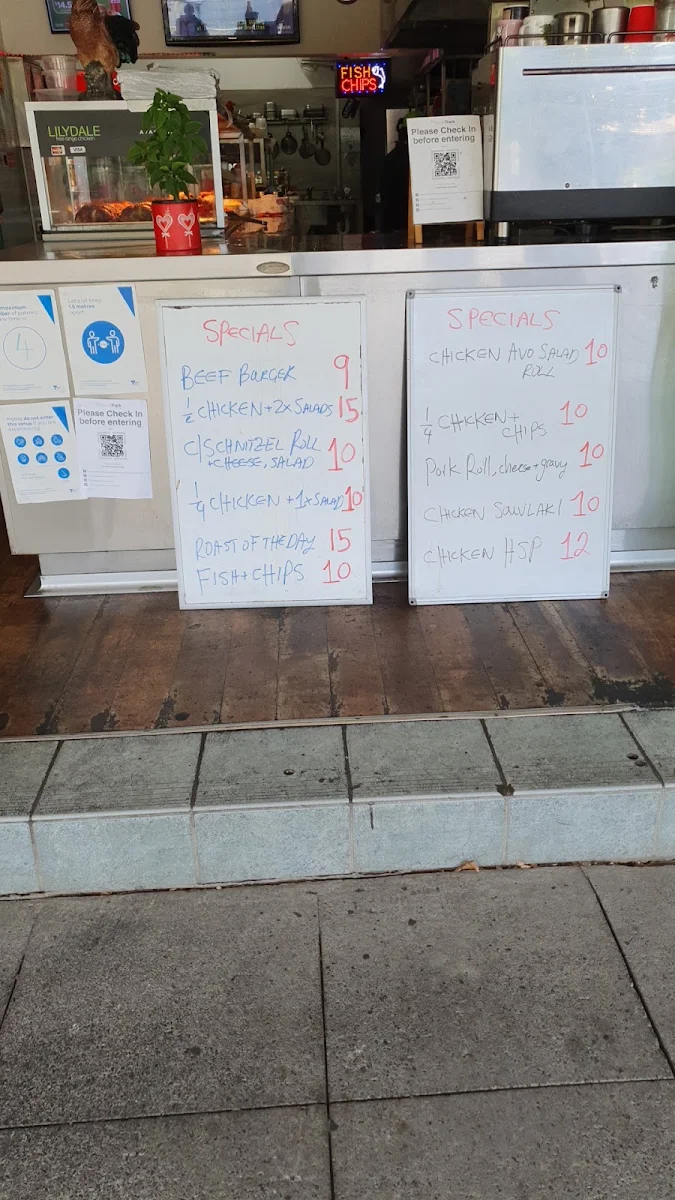 $14.5
FISH
CHIPS
LILYDALE
free range chicken
VISA
Please Check In
before entering
4
Let's all keep
1.5 metres
apart.
Please do not enter
this venue if you are
experiencing:
Please Check In
before entering
SPECIALS
BEEF BURGER 9
½ CHICKEN + 2x SALADS 15
C/SCHNITZEL ROLL
+CHEESE, SALAD 10
¼ CHICKEN + 1x SALAD 10
ROAST OF THE DAY 15
FISH + CHIPS 10
SPECIALS
CHICKEN AVO SALAD 10
ROLL
¼ CHICKEN + 10
CHIPS
Pork Roll, cheese + gravy 10
CHICKEN SOUVLAKI 10
CHICKEN HSP 12